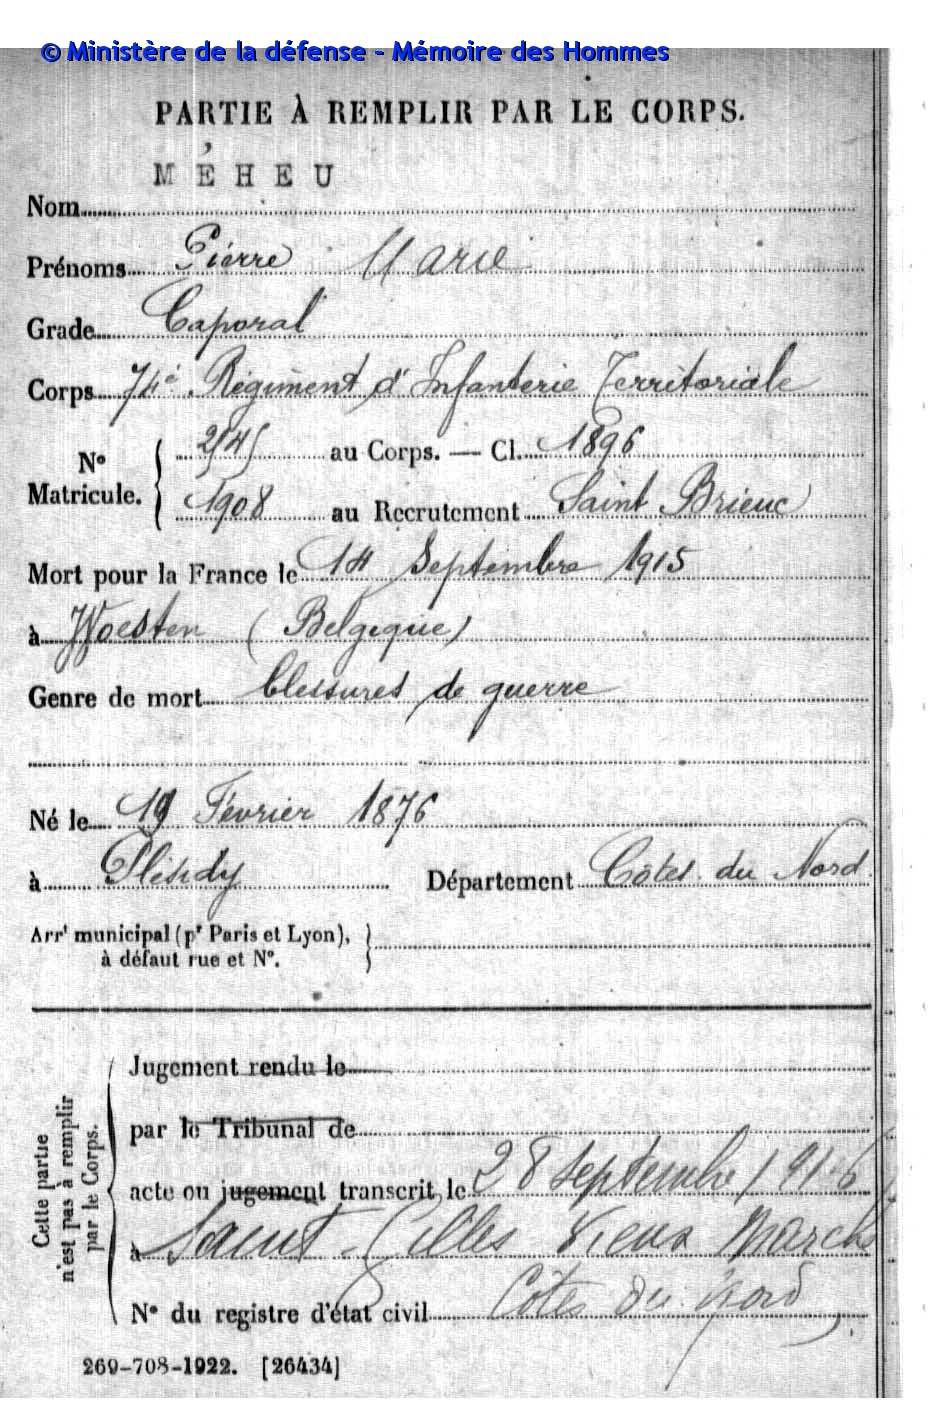 © Ministère de la défense - Mémoire des Hommes
PARTIE À REMPLIR PAR LE CORPS.
MÉHEU
Nom
Prénoms Pierre Marie
Grade Caporal
Corps 74e Régiment d'Infanterie Territoriale
N° Matricule. { au Corps. — Cl. 1896
1908 au Recrutement Saint Brieuc
Mort pour la France le 14 Septembre 1915
à Woesten (Belgique)
Genre de mort blessures de guerre
Né le 19 Février 1876
à Plésidy Département Côtes du Nord
Arrt municipal (pr Paris et Lyon), }
à défaut rue et N°.
Cette partie n'est pas à remplir par le Corps.
Jugement rendu le
par le Tribunal de
acte ou jugement transcrit le 28 septembre 1916
à Saint Gilles Vieux Marché
Côtes du Nord
N° du registre d'état civil
269-708-1922. [26434]